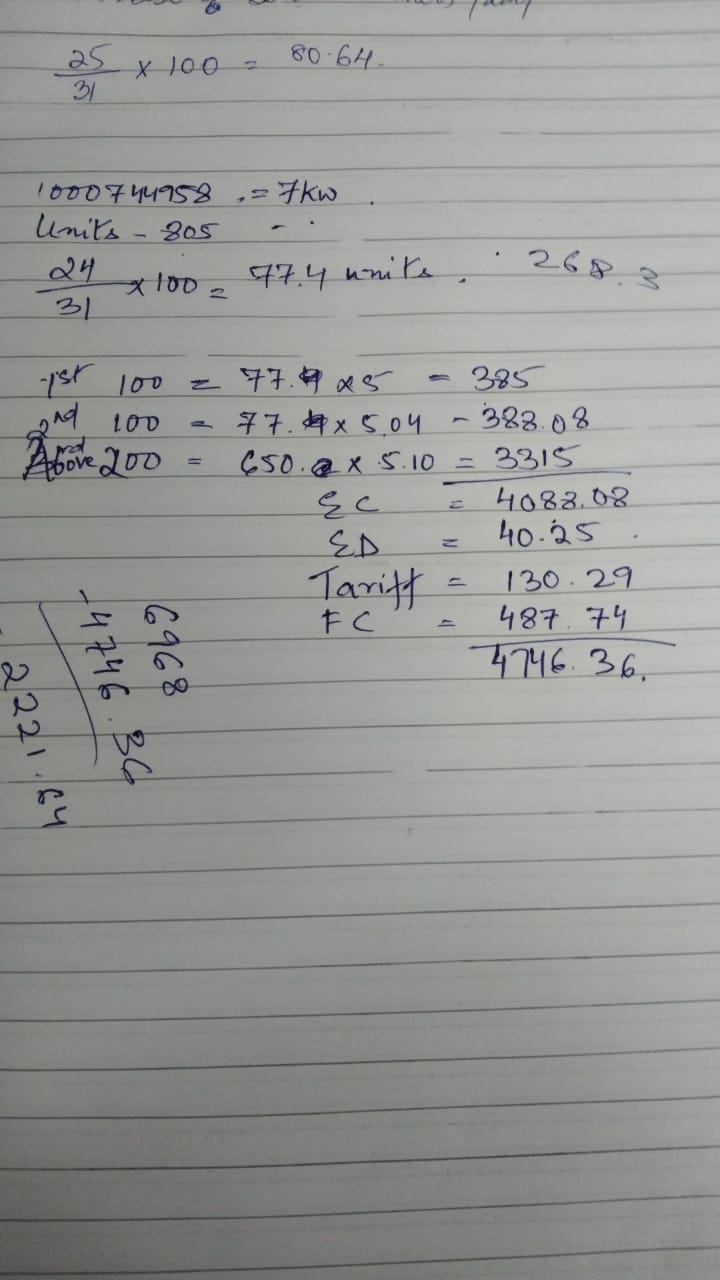 25/31 x 100 = 80.64.
1000744958 .= 7kw .
Units - 805
24/31 x 100 = 77.4 units . 268.3
1st 100 = 77. x 5 = 385
2nd 100 = 77. x 5.04 - 388.08
Above 200 = 650. x 5.10 = 3315
EC = 4088.08
ED = 40.25 .
Tariff = 130.29
FC = 487.74
4746.36.
6968
- 4746.36
2221.64